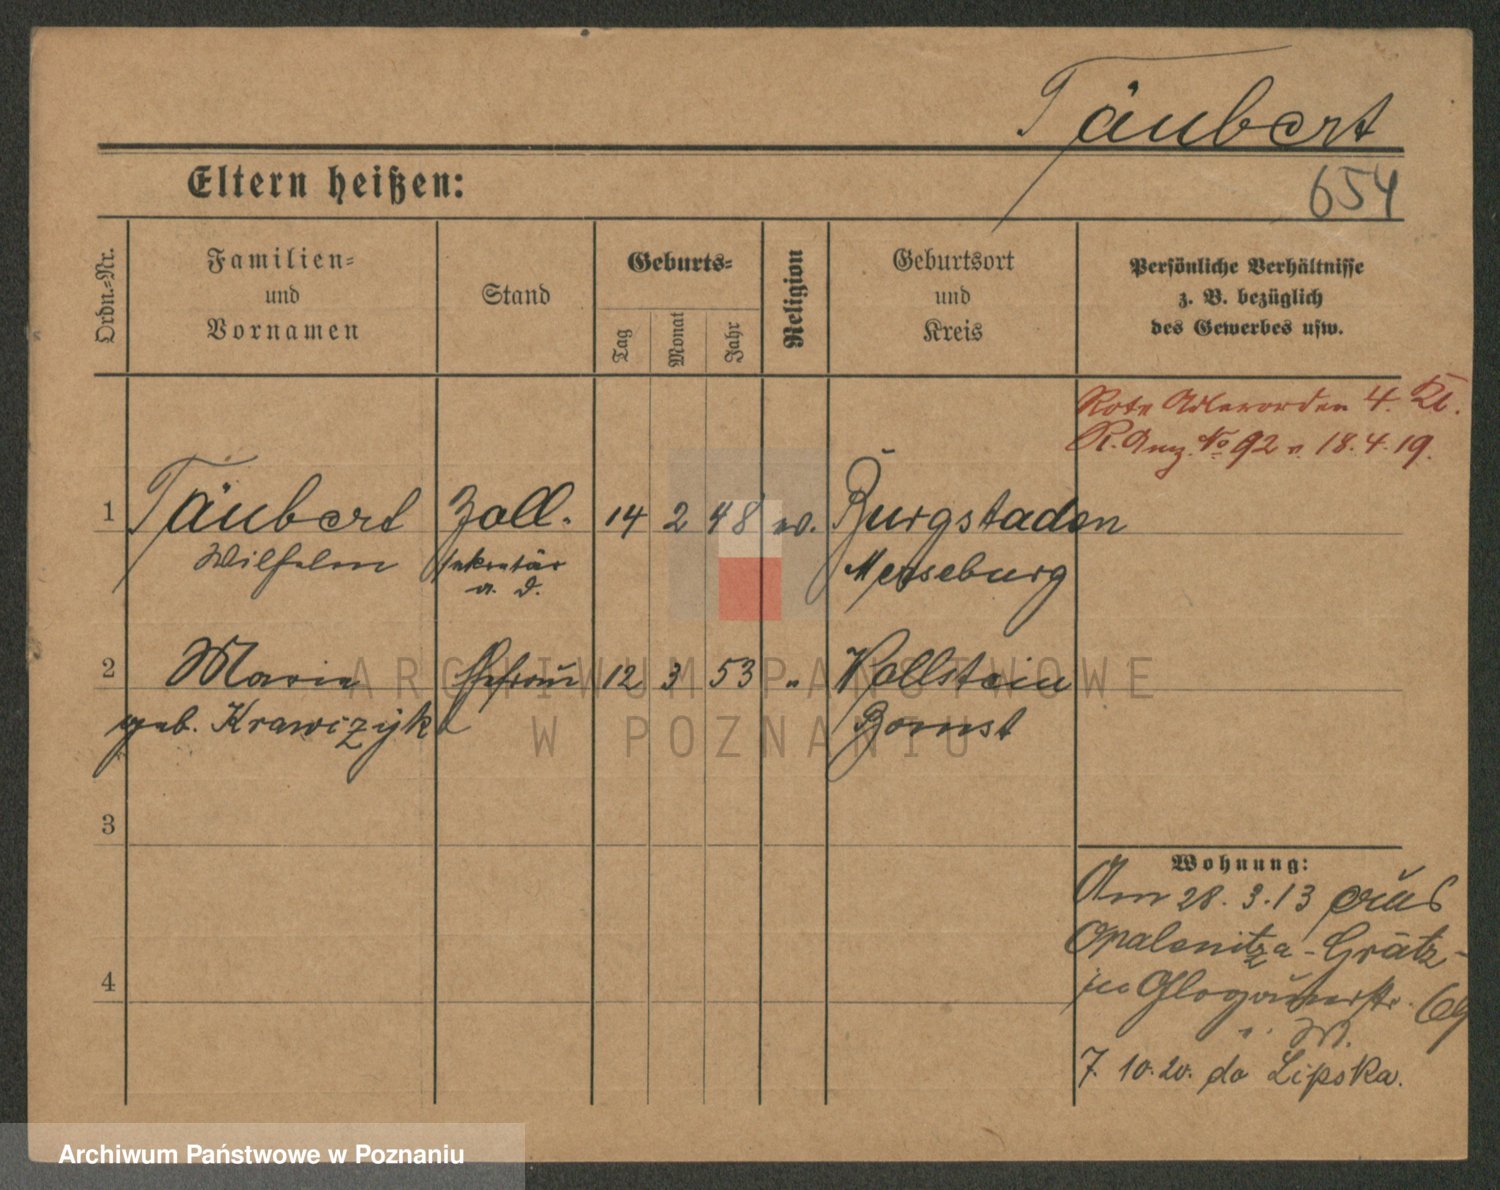 Täubert
Eltern heißen:
654
Ordn.=Nr.
Familien=
und
Vornamen
Stand
Geburts=
Tag
Monat
Jahr
Religion
Geburtsort
und
Kreis
Persönliche Verhältnisse
z. B. bezüglich
des Gewerbes usw.
Rote Adlerorden 4. Kl.
R. Anz. No 92 v. 18.4.19.
1 Täubert Zoll- 14 2 48 ev. Burgstaden
Wilhelm sekretär Merseburg
a. D.
2 Marie Ehefrau 12 3 53 " Wollstein
geb. Krawczyk Bomst
3
4
Wohnung:
Am 28.3.13 aus
Opalenitza-Grätz-
in Glogauerstr. 69
7.10.20. do Lipska.
ARCHIWUM PAŃSTWOWE
W POZNANIU
Archiwum Państwowe w Poznaniu